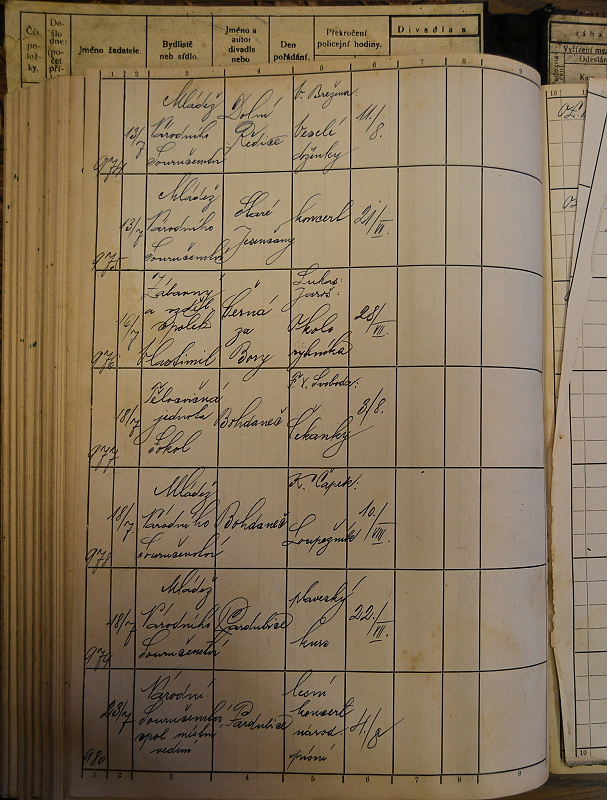 Čís. polož- ky.
Do- šlo dne: (po- čet pří-
Jméno žadatele.
Bydliště neb sídlo.
Jméno a autor divadla nebo
Den pořádání.
Překročení policejní hodiny.
Divadlu a
zába
Vyřízení me
Odeslán
1 2 3 4 5 6 7 8 9
10
974
13/7
Mládež
Národního
Souručenství
Dolní
Ředice
V. Březina:
Veselé
dožínky
11/8.
975
13/7
Mládež
Národního
Souručenství
Staré
Jesenčany
koncert
21/VII.
976
16/7
Zábavný
a vzděl.
spolek
Vlastimil
Černá
za
Bory
Lukas:
Jaroš:
Okolo
rybníka
28/VII.
977
18/7
Tělocvičná
jednota
Sokol
Bohdaneč
F. X. Svoboda:
Čekanky
3/8.
978
18/7.
Mládež
Národního
Souručenství
Bohdaneč
K. Čapek:
Loupežník
10./VIII.
979
18/7
Mládež
Národního
Souručenství
Pardubice
plavecký
kurs
22./VII.
980
23/7
Národní
Souručenství,
spol. místní
vedení
Pardubice
lesní
koncert
národ.
písní
4/8
1 2 3 4 5 6 7 8 9
10